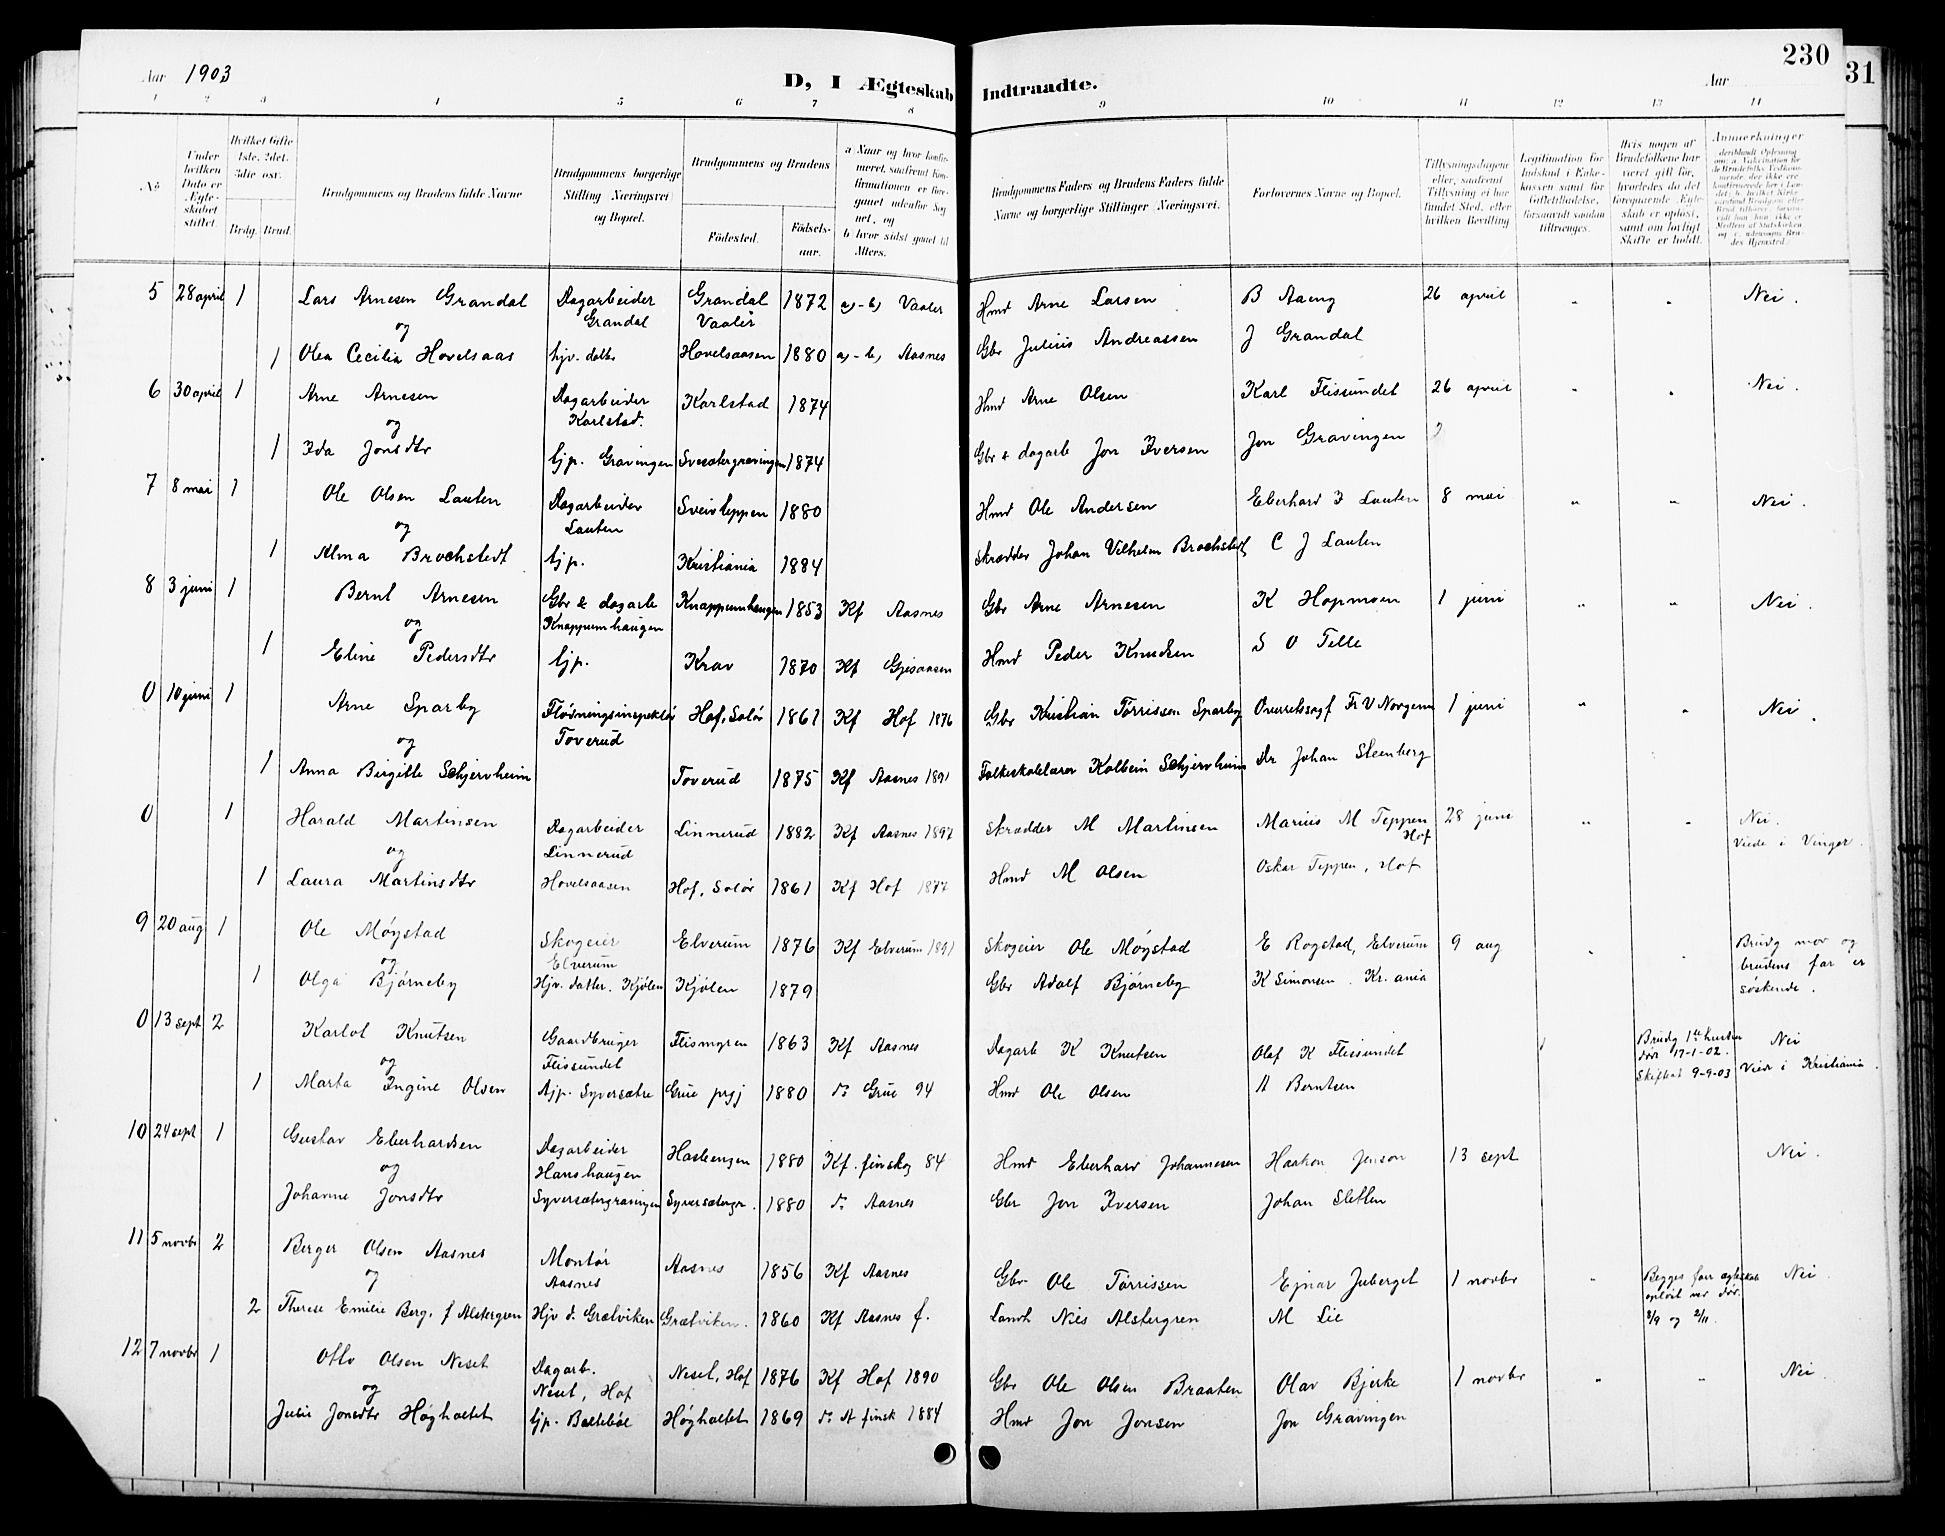 230
31
Aar 1903
D, I Ægteskab Indtraadte.
Aar
1 2 3 4 5 6 7 8 9 10 11 12 13 14
No
Under hvilken Dato er Ægteskabet stiftet.
Hvilket Gifte 1ste, 2det, 3die osv.
Brdg. Brud.
Brudgommens og Brudens fulde Navne
Brudgommens borgerlige Stilling (Næringsvei) og Bopæl.
Brudgommens og Brudens
Fødested.
Fødselsaar.
Brudgommens Faders og Brudens Faders fulde Navne og borgerlige Stillinger (Næringsvei.
Forlovernes Navne og Bopæl.
Tillysningsdagene eller, saafremt Tillysning ei har fundet Sted, eller hvilken Bevilling
Anmerkninger
5 28 april 1 Lars Arnesen Grandal Dagarbeider Grandal Grandal Vaaler 1872 a)-b) Vaaler Hmd Arne Larsen B Aaeng 26 april " " Nei.
og
1 Olea Cecilia Hovelsaas hjv. datter Hovelsaasen 1880 a)-b) Aasnes Gbr Julius Andreassen J Grandal
6 30 april 1 Arne Arnesen Dagarbeider Karlstad. Karlstad 1874 Hmd Arne Olsen Karl Flissundet 26 april " " Nei.
og
1 Ida Jonsdtr tjp. Gravingen Svesætergravingen 1874 Gbr & dagarb Jon Iversen Jon Gravingen
7 8 mai 1 Ole Olsen Lauten Dagarbeider Lauten Sveivteppen 1880 Hmd Ole Andersen Eberhard J Lauten 8 mai " " Nei.
og
1 Alma Brochstedt tjp. Kristiania 1884 Skrædder Johan Vilhelm Brochstedt C J Lauten
8 3 juni 1 Bernt Arnesen Gbr & dagarb Knappumhaugen Knappumhaugen 1853 Kf Aasnes Gbr Arne Arnesen K Hopmoen 1 juni " " Nei.
og
1 Eline Pedersdtr tjp. Krav 1870 Kf Gjesaasen Hmd Peder Knudsen S O Telle
0 10 juni 1 Arne Sparby Flødningsinspektør Toverud Hof, Solør 1861 Kf Hof 1876 Gbr Kristian Tørrissen Sparby Overretssagf Fr V Norgenn 1 juni " " Nei.
og
1 Anna Birgitte Schjervheim Toverud 1875 Kf Aasnes 1891 Folkeskolelærer Kolbein Schjervheim Dr Johan Steenberg
0 1 Harald Martinsen Dagarbeider Linnerud Linnerud 1882 Kf Aasnes 1897 Skrædder M Martinsen Marius M Teppen Hof 28 juni " " Nei. Viede i Vinger.
og
1 Laura Martinsdtr Hovelsaasen Hof, Solør 1861 Kf Hof 1877 Hmd M Olsen Oskar Teppen, Hof
9 20 aug 1 Ole Møystad Skogeier Elverum Elverum 1876 Kf Elverum 1891 Skogeier Ole Møystad E Rogstad, Elverum 9 aug " " Brudg mor og brudens far er søskende.
og
1 Olga Bjørneby Hjv. datter. Kjølen Kjølen 1879 Gbr Adolf Bjørneby K Simonsen. Kr.ania
0 13 sept 2 Karlot Knutsen Gaardbruger Flissundet Flismyren 1863 Kf Aasnes Dagarb K Knutsen Olaf K Flissundet Brudg 1ste hustru dør 17-1-02. Skifteat 9-9-03 Nei Viede i Kristiania.
og
1 Marta Ingine Olsen Tjp. Syversætre Grue prgj 1880 do Grue 94 Hmd Ole Olsen A Berntsen
10 24 sept 1 Gustav Eberhardsen Dagarbeider Hanshaugen 1880 Kf. finskog 84 Hmd Eberhard Johannesen Haakon Jenson 13 sept Nei.
og
Johanne Jonsdtr Syversætergravingen Syversætergr. 1880 do Aasnes Gbr Jon Iversen Johan Sletten
11 5 novbr 2 Berger Olsen Aasnes Montør Aasnes Aasnes 1856 Kf Aasnes Gbr Ole Tørrissen Ejnar Juberget 1 novbr " Begges førr ægteskab opløst ved død. 8/9 og 2/11. Nei
og
2 Therese Emilie Berg, f Alstergren Hjv d. Grætviken Grætviken. 1860 Kf Aasnes f. Landh Nils Alstergren M Lie
12 7 novbr 1 Otto Olsen Neset Dagarb. Neset, Hof Neset, Hof 1876 Kf Hof 1890 Gbr Ole Olsen Braaten Olav Bjerke 1 novbr " " Nei
og
Julie Jonsdtr Høgholtet tjp. Høgholtet 1869 do A finsk 1884 Hmd Jon Jonsen Jon Gravingen